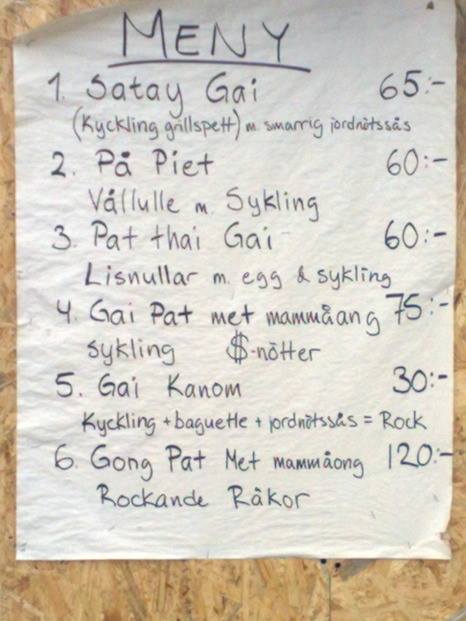 MENY
1. Satay Gai 65:-
(Kyckling grillspett) m. smarrig jordnötssås
2. På Piet 60:-
Vållulle m. Sykling
3. Pat thai Gai 60:-
Lisnullar m. egg & sykling
4. Gai Pat met mammåang 75:-
sykling $-nötter
5. Gai Kanom 30:-
Kyckling + baguette + jordnötssås = Rock
6. Gong Pat Met mammåong 120:-
Rockande Räkor